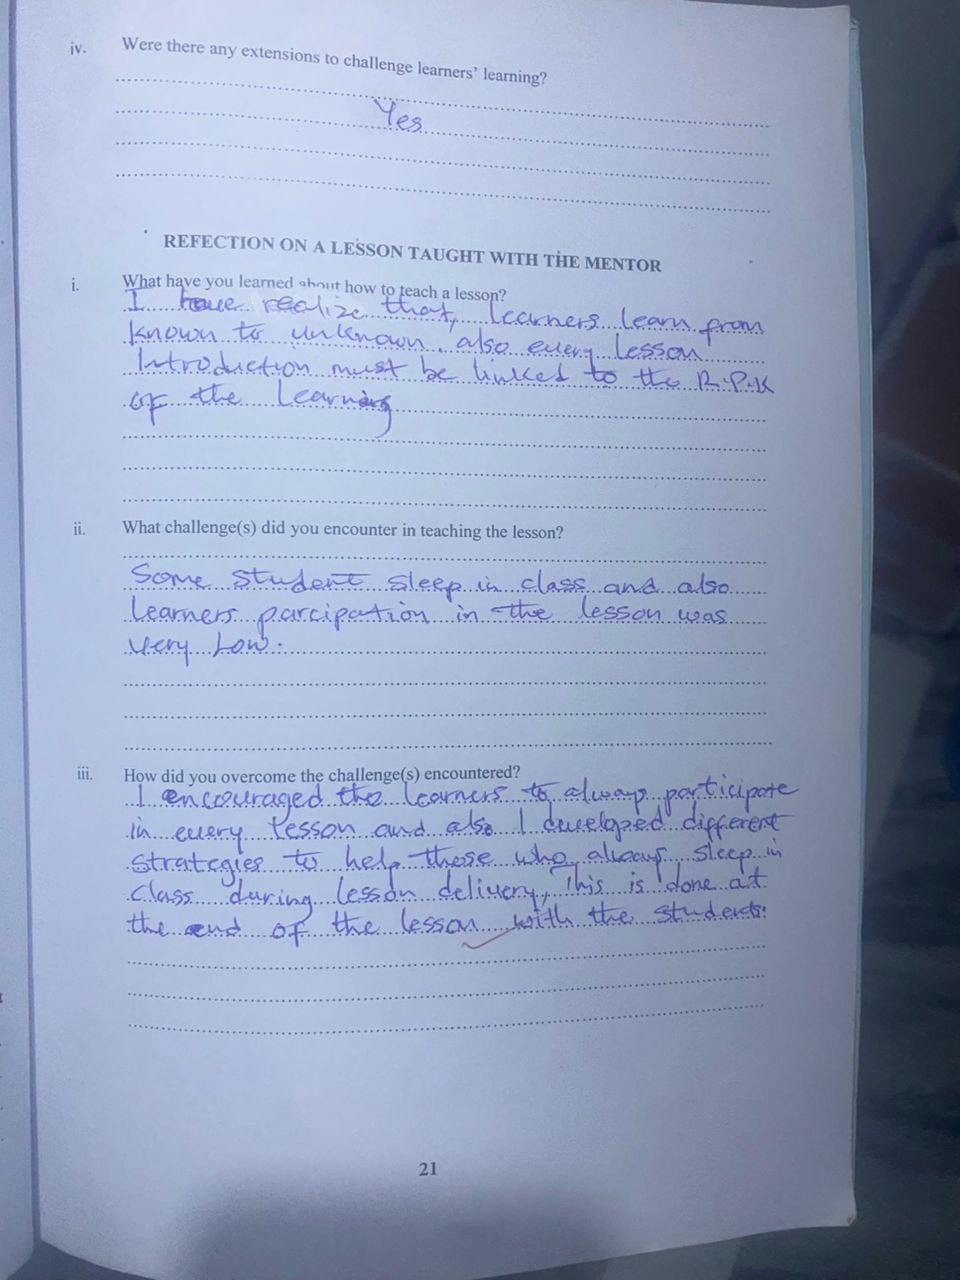 iv. Were there any extensions to challenge learners' learning?
Yes
REFECTION ON A LESSON TAUGHT WITH THE MENTOR
i. What have you learned about how to teach a lesson?
I have realize that, learners learn from
known to unknown. also every lesson
Introduction must be linked to the R.P.K
of the Learning
ii. What challenge(s) did you encounter in teaching the lesson?
Some student sleep in class and also
learners parcipation in the lesson was
very Low.
iii. How did you overcome the challenge(s) encountered?
I encouraged the learners to always participate
in every lesson and also I developed different
strategies to help those who always sleep in
class during lesson delivery, This is done at
the end of the lesson with the students.
21